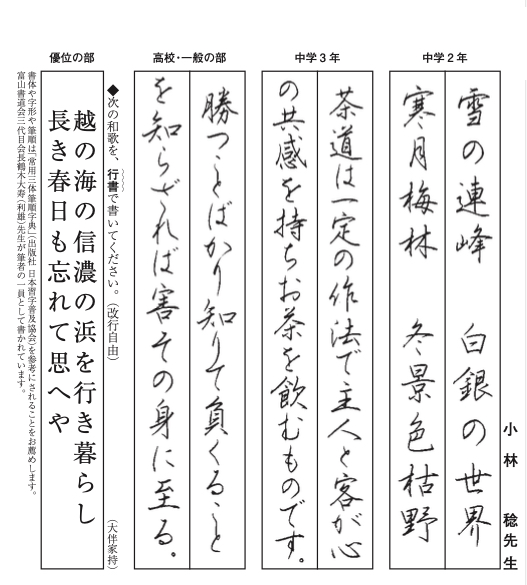 小林 稔先生
中学2年
雪の連峰 白銀の世界
寒月梅林 冬景色枯野
中学3年
茶道は一定の作法で主人と客が心
の共感を持ちお茶を飲むものです。
高校・一般の部
勝つことばかり知りて負くること
を知らざれば害その身に至る。
優位の部
◆次の和歌を、行書で書いてください。(改行自由)
越の海の信濃の浜を行き暮らし
長き春日も忘れて思へや
(大伴家持)
書体や字形や筆順は「常用三体筆順字典」(出版社 日本習字普及協会)を参考にされることをお薦めします。
富山書道会三代目会長鶴木大寿(利雄)先生が筆者の一員として書かれています。